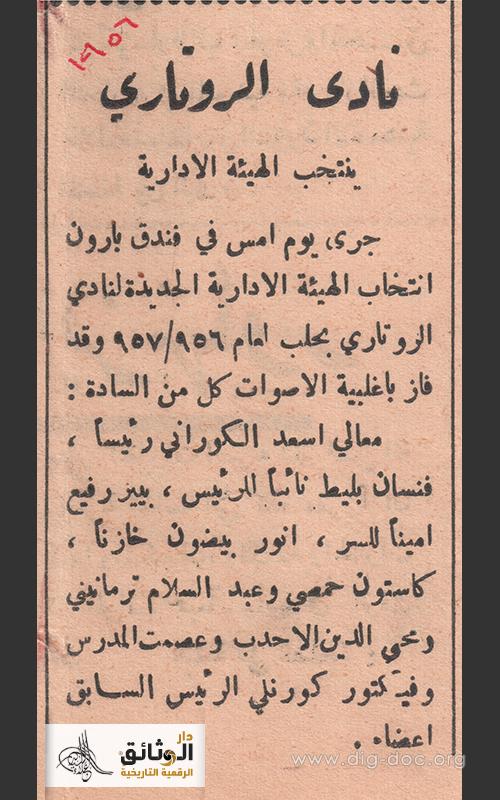 نادى الروتاري
ينتخب الهيئة الادارية
جرى يوم امس في فندق بارون
انتخاب الهيئة الادارية الجديدة لنادي
الروتاري بحلب لعام ٩٥٧/٩٥٦ وقد
فاز باغلبية الاصوات كل من السادة :
معالي اسعد الكوراني رئيساً ،
فنسان بليط نائباً للرئيس ، بيير رفيع
اميناً للسر ، انور بيضون خازناً ،
كاستون حمصي وعبد السلام ترمانيني
ومحي الدين الاحدب وعصمت المدرس
وفيكتور كورنلي الرئيس السابق
اعضاء .
دار
الوثائق
الرقمية التاريخية
www.dig-doc.org